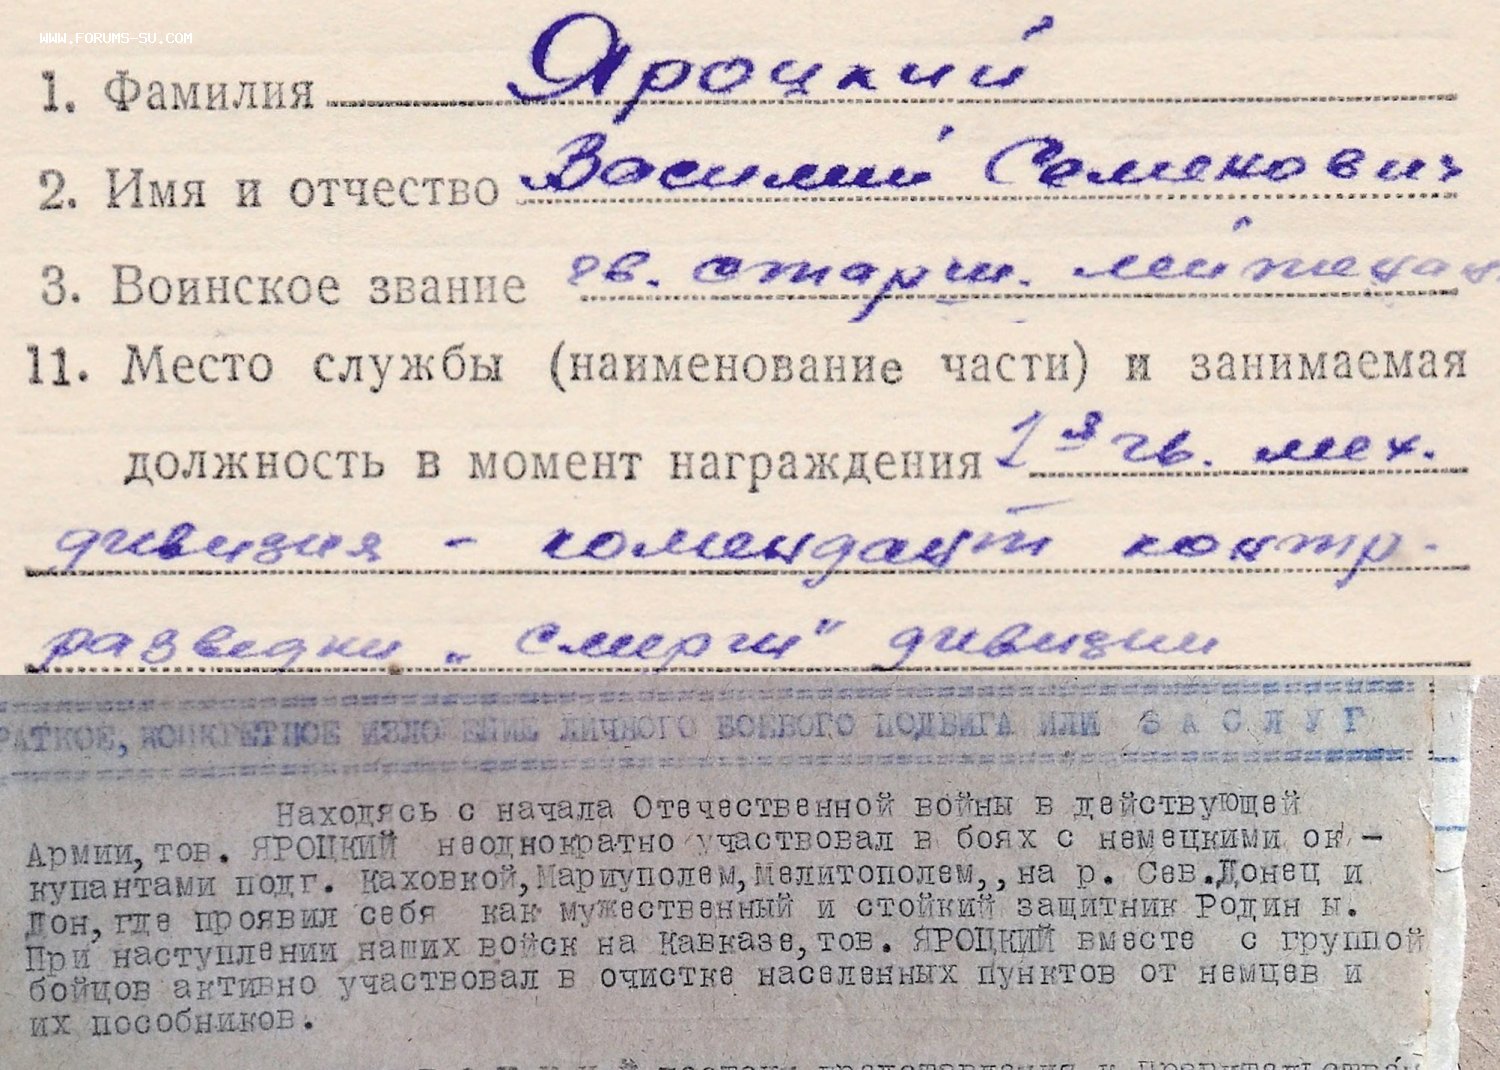 WWW.FORUMS-SU.COM
1. Фамилия Яроцкий
2. Имя и отчество Василий Семенович
3. Воинское звание гв. старш. лейтенант
11. Место службы (наименование части) и занимаемая
должность в момент награждения 1я гв. мех.
дивизия - комендант контр.
разведки „Смерш" дивизии
РАТКОЕ, КОНКРЕТНОЕ ИЗЛОЖЕНИЕ ЛИЧНОГО БОЕВОГО ПОДВИГА ИЛИ ЗАСЛУГ
Находясь с начала Отечественной войны в действующей
Армии, тов. ЯРОЦКИЙ неоднократно участвовал в боях с немецкими ок -
купантами подг. Каховкой, Мариуполем, Мелитополем,, на р. Сев. Донец и
Дон, где проявил себя как мужественный и стойкий защитник Родин ы.
При наступлении наших войск на Кавказе, тов. ЯРОЦКИЙ вместе с группой
бойцов активно участвовал в очистке населенных пунктов от немцев и
их пособников.